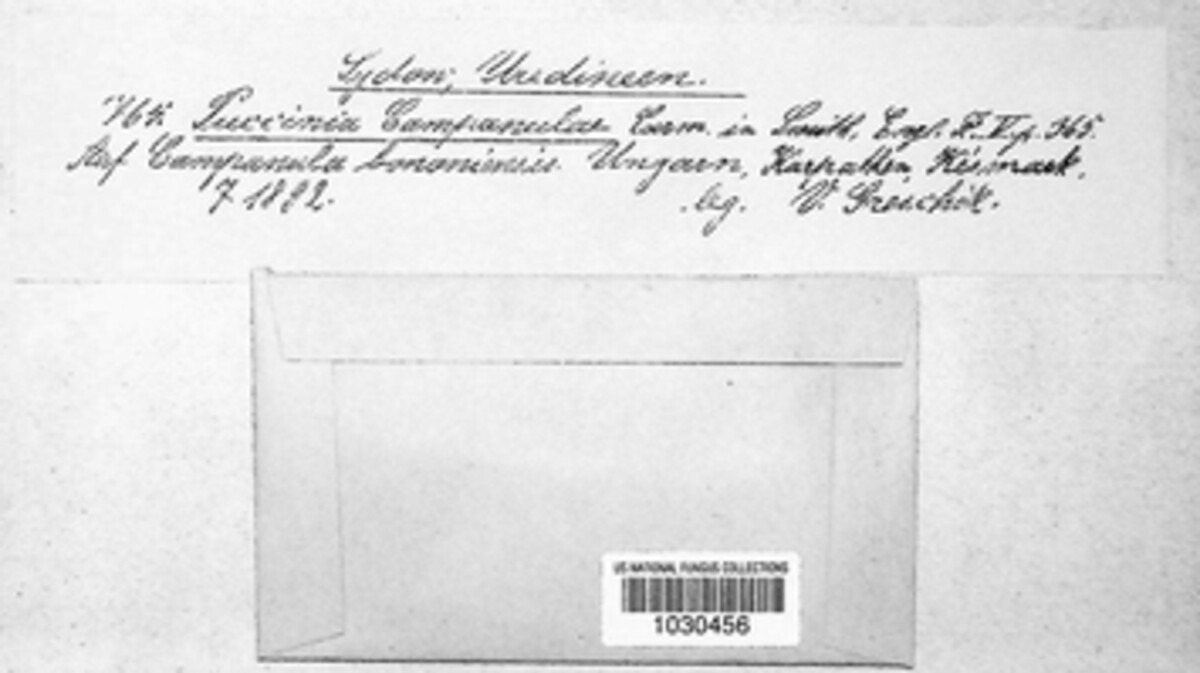 Sydow, Uredineen.
Puccinia Campanulae Carm. in Smith, Engl. Fl. V p. 365.
Auf Campanula bononiensis Ungarn, Karpathen, Késmark,
7 1892. leg. V. Greschik.
US NATIONAL FUNGUS COLLECTIONS
1030456